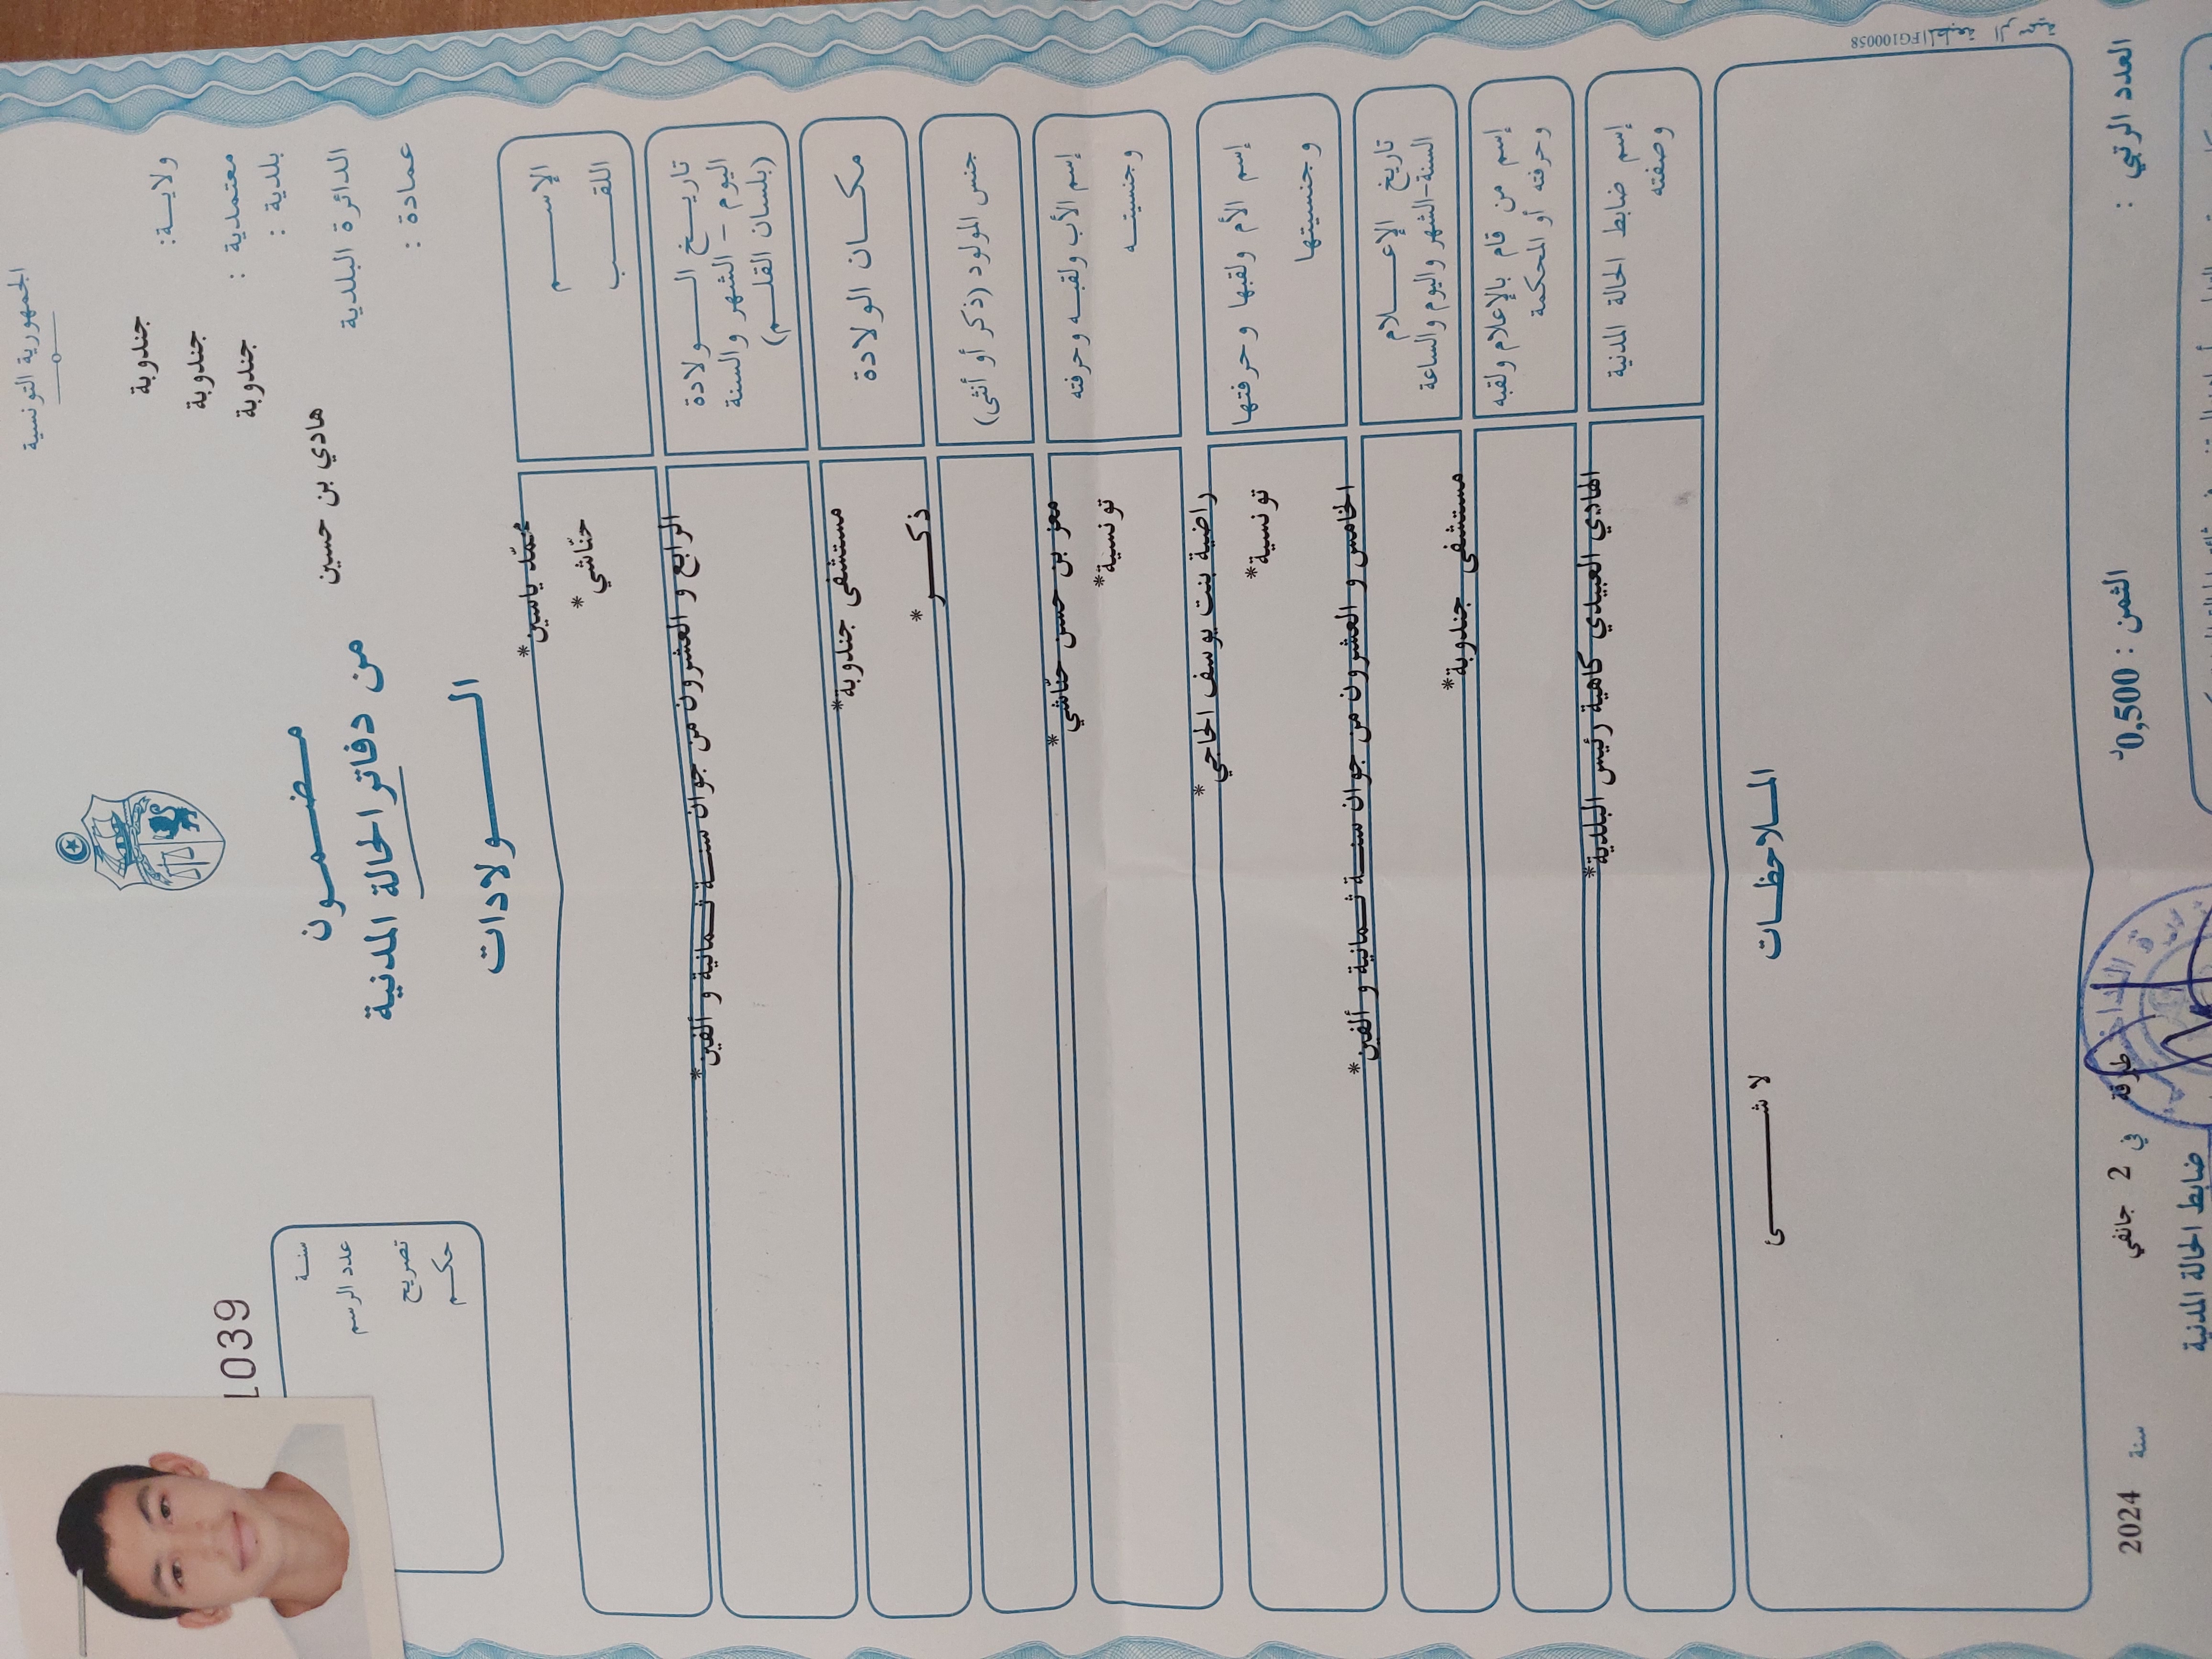 الجمهورية التونسية
ولايـــة: جندوبة
معتمدية : جندوبة
بلدية : جندوبة
الدائرة البلدية هادي بن حسين
عمادة :
مضـمــون
من دفاتر الحالة المدنية
الــــولادات
1039
سنـــة
عدد الرسم
تصريح
حكـــم
الإســـــم محمّد ياسين*
اللقــــب حنّاشي*
تاريـــخ الـــــولادة
اليوم - الشهر والسنة
(بلسان القلـــم)
الرابع و العشرون من جوان سنــة ثــمانية و ألفين*
مكـــان الولادة مستشفى جندوبة*
جنس المولود (ذكر أو أنثى) ذكــــر*
إسم الأب ولقبـــه وحرفته معز بن حسن حنّاشي*
وجنسيتـــه تونسية*
إسم الأم ولقبها وحرفتها راضية بنت يوسف الحاجي*
وجنسيتها تونسية*
تاريخ الإعـــــلام
السنة-الشهر واليوم والساعة
الخامس و العشرون من جوان سنــة ثــمانية و ألفين*
إسم من قام بالإعلام ولقبه
وحرفته أو المحكمة
مستشفى جندوبة*
إسم ضابط الحالة المدنية
وصفته
الهادي العبيدي كاهية رئيس البلدية*
المــلاحظــات
لا شـــــــئ
FG100058 المطبعة الرسمية
العدد الرتبي : الثمن : 0,500د طبرقة في 2 جانفي سنة 2024
ضابط الحالة المدنية